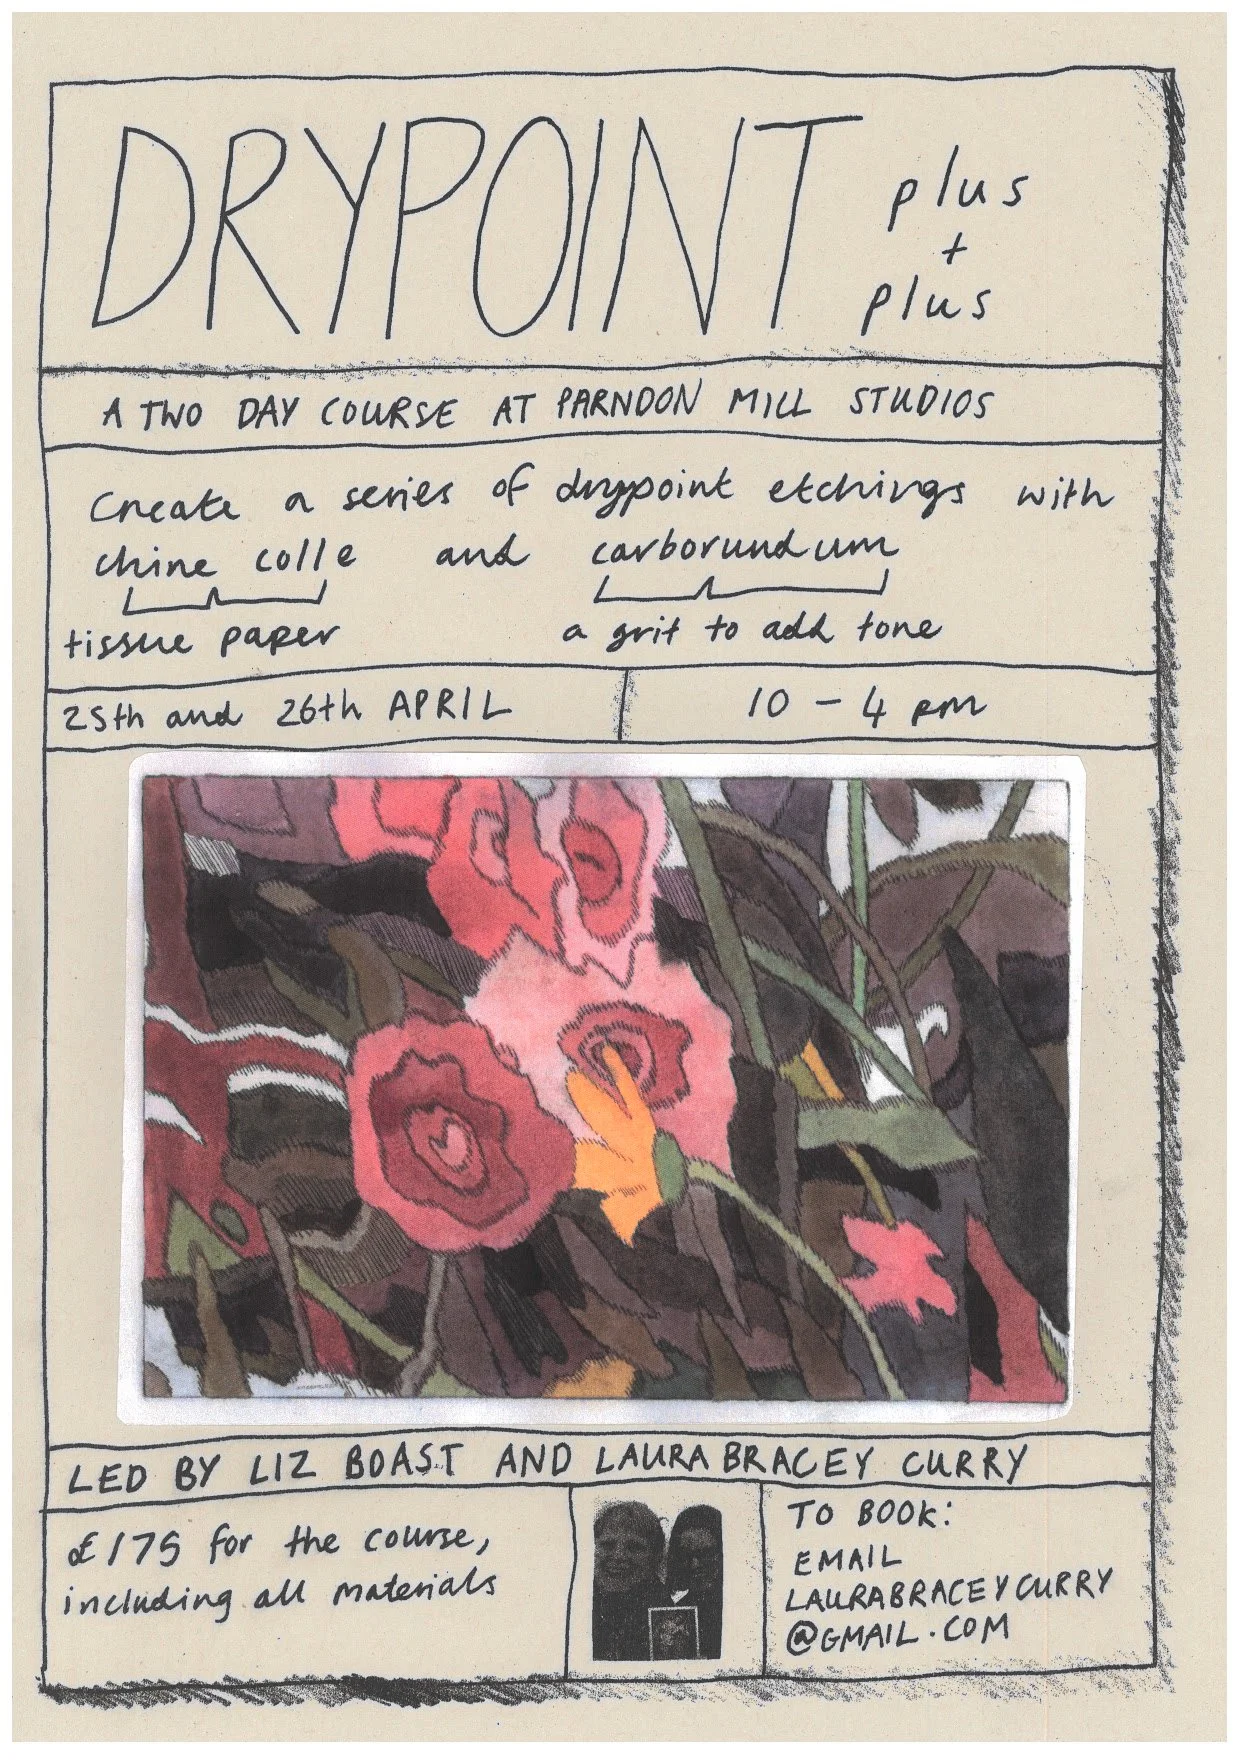 DRYPOINT plus
+
plus
A TWO DAY COURSE AT PARNDON MILL STUDIOS
Create a series of drypoint etchings with
chine colle and carborundum
tissue paper a grit to add tone
25th and 26th APRIL 10 - 4 pm
LED BY LIZ BOAST AND LAURA BRACEY CURRY
£175 for the course,
including all materials
TO BOOK:
EMAIL
LAURABRACEYCURRY
@GMAIL.COM